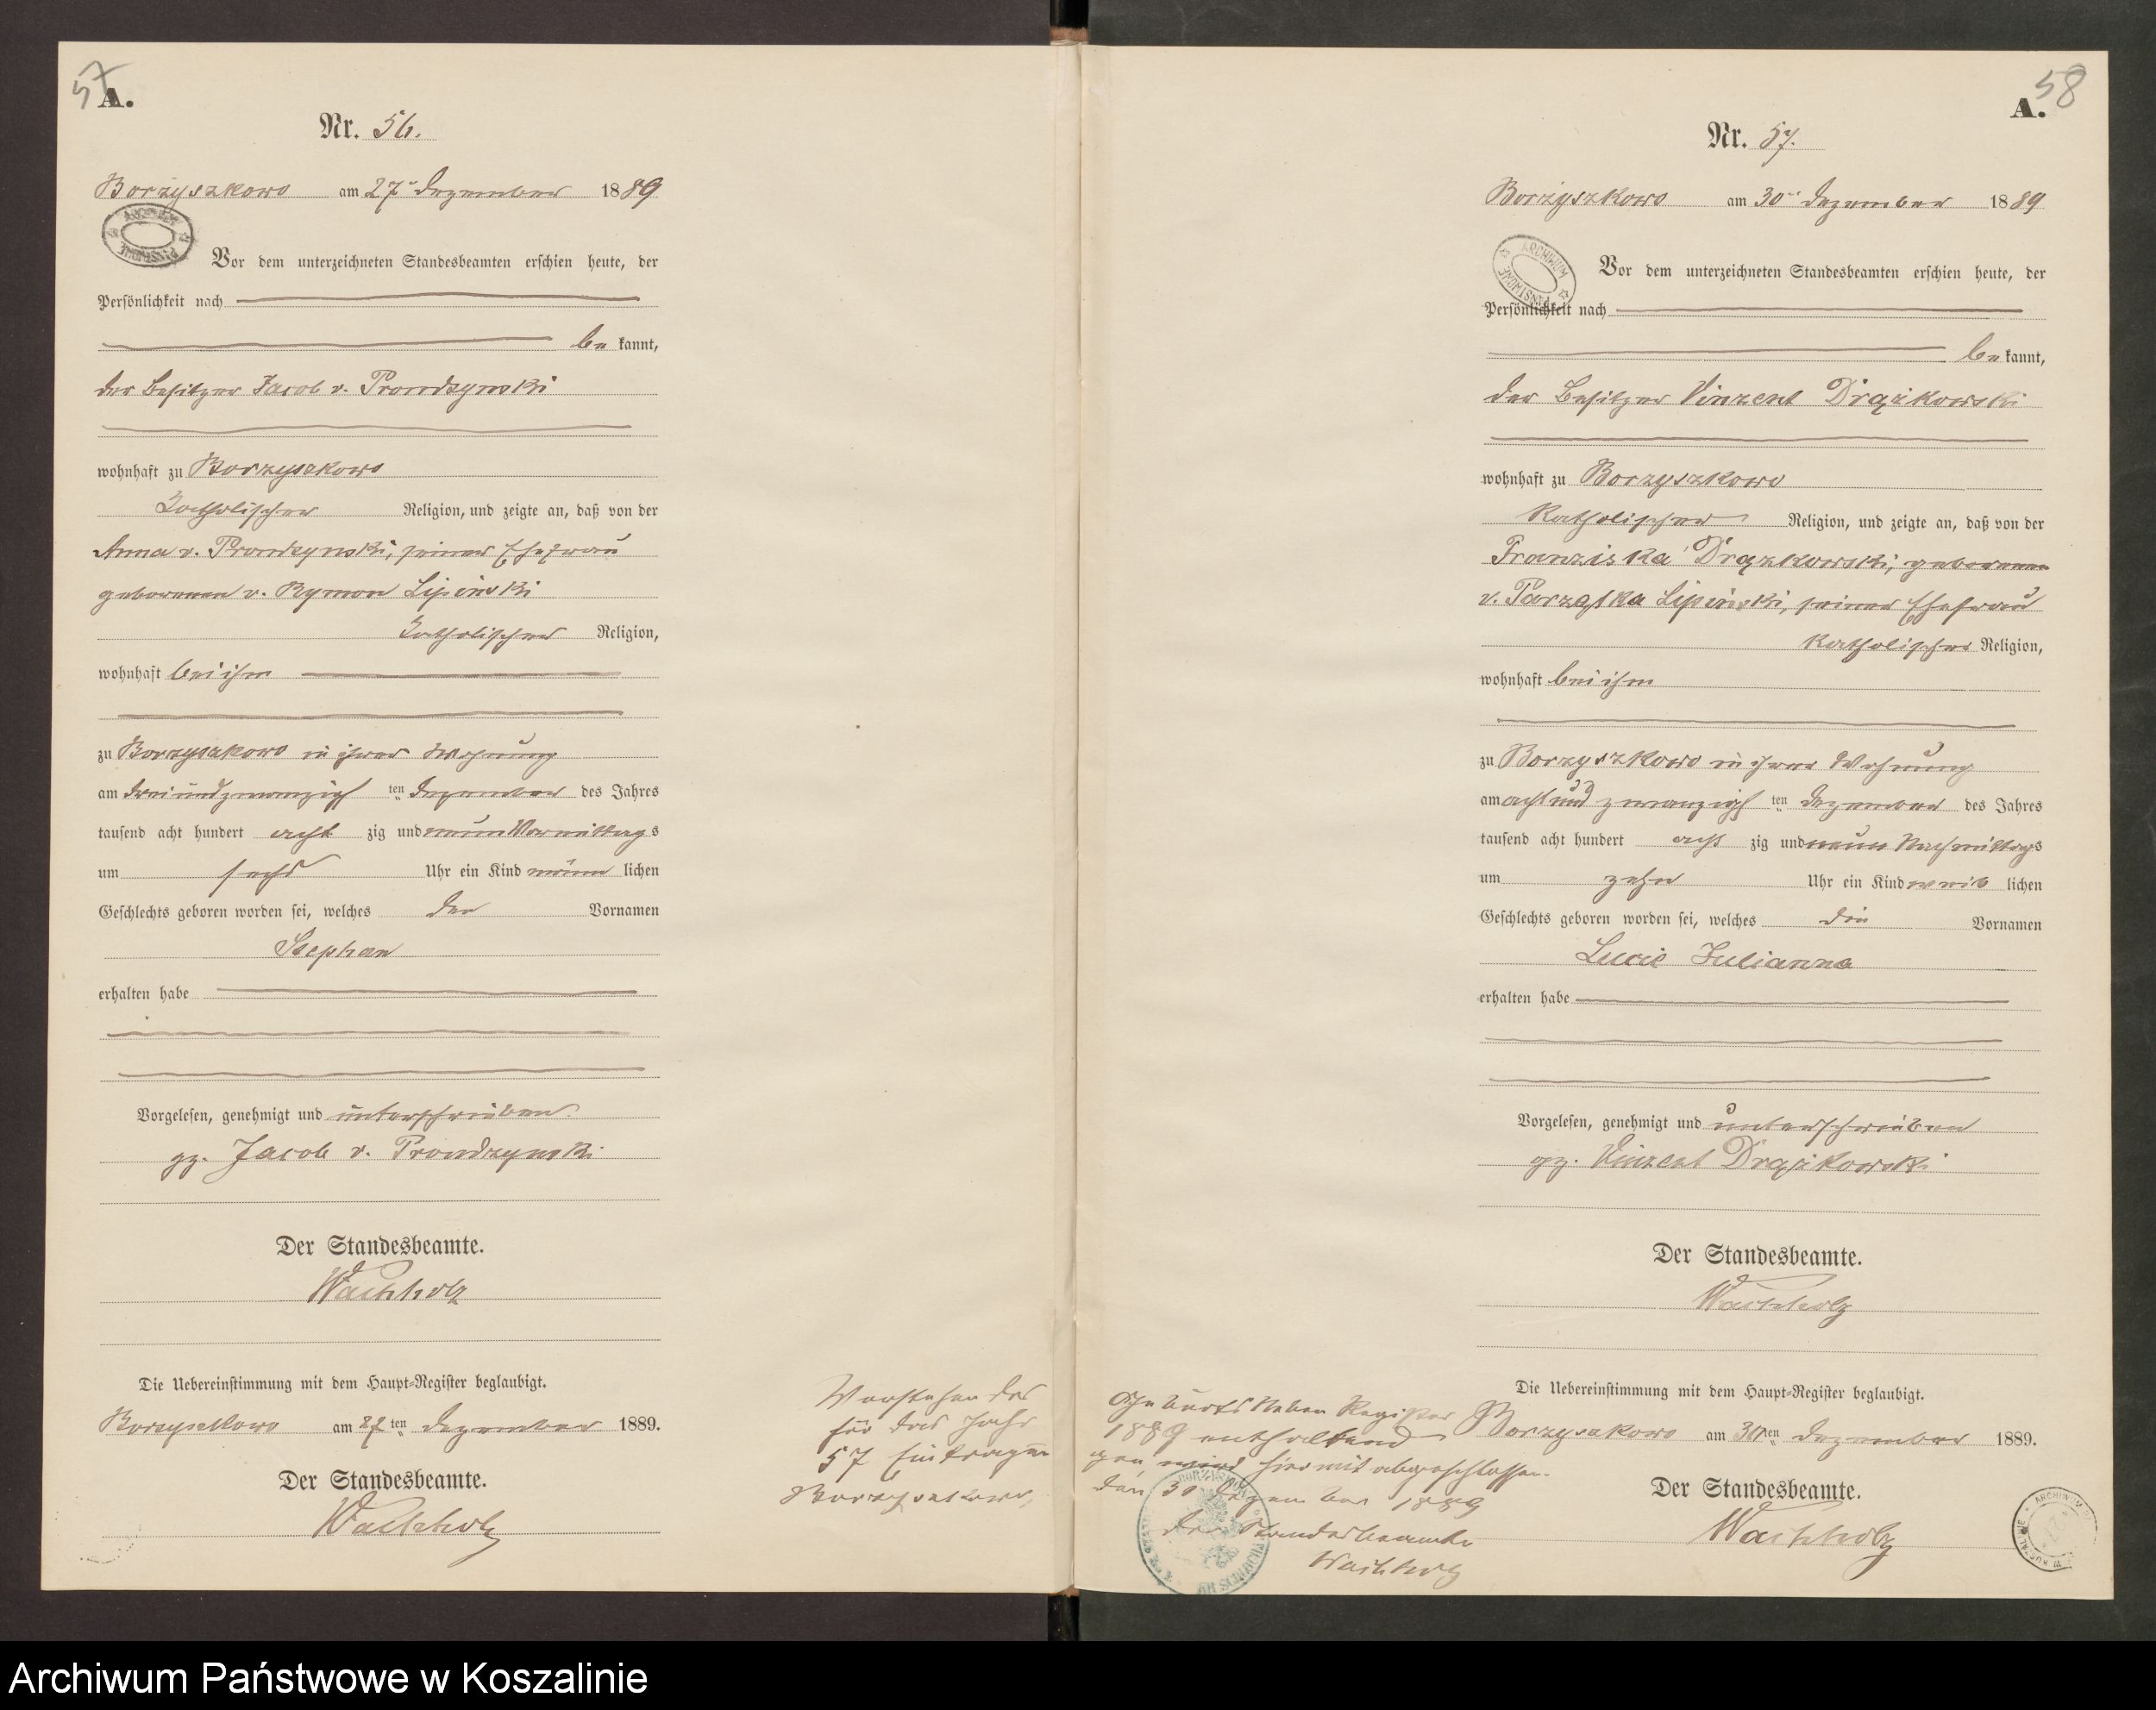 57
A.
Nr. 56.
Borzyszkowo am 27ten Dezember 1889
Vor dem unterzeichneten Standesbeamten erschien heute, der
Persönlichkeit nach
be kannt,
der Besitzer Jacob v. Prondzynski
wohnhaft zu Borzyszkowo
katholischer Religion, und zeigte an, daß von der
Anna v. Prondzynski, seiner Ehefrau
geborenen v. Rymon Lipinski
katholischer Religion,
wohnhaft bei ihm
zu Borzyszkowo in ihrer Wohnung
am dreiundzwanzigsten Dezember des Jahres
tausend acht hundert acht zig und neun Vormittags
um sechs Uhr ein Kind männ lichen
Geschlechts geboren worden sei, welches den Vornamen
Stephan
erhalten habe
Vorgelesen, genehmigt und unterschrieben.
gz. Jacob v. Prondzynski
Der Standesbeamte.
Wachholz
Die Uebereinstimmung mit dem Haupt-Register beglaubigt.
Borzyszkowo am 27ten Dezember 1889.
Der Standesbeamte.
Wachholz
58
A.
Nr. 57.
Borzyszkowo am 30ten Dezember 1889
ARCHIWUM PAŃSTWOWE
Vor dem unterzeichneten Standesbeamten erschien heute, der
Persönlichkeit nach
be kannt,
der Besitzer Vinzent Drążkowski
wohnhaft zu Borzyszkowo
katholischer Religion, und zeigte an, daß von der
Franziska Drązkowski, geborenen
v. Parzątka Lipinski, seiner Ehefrau
katholischer Religion,
wohnhaft bei ihm
zu Borzyszkowo in ihrer Wohnung
am achtundzwanzigsten Dezember des Jahres
tausend acht hundert acht zig und neun Nachmittags
um zehn Uhr ein Kind weib lichen
Geschlechts geboren worden sei, welches die Vornamen
Lucie Julianna
erhalten habe
Vorgelesen, genehmigt und unterschrieben
gz. Vinzent Drążkowski
Der Standesbeamte.
Wachholz
Die Uebereinstimmung mit dem Haupt-Register beglaubigt.
Borzyszkowo am 30ten Dezember 1889.
Der Standesbeamte.
Wachholz
Vorstehendes Geburts Neben Register
für das Jahr 1889 enthaltend
57 Eintragungen wird hiermit abgeschlossen.
Borzyszkowo, den 30 Dezember 1889
Der Standesbeamte
Wachholz
Archiwum Państwowe w Koszalinie